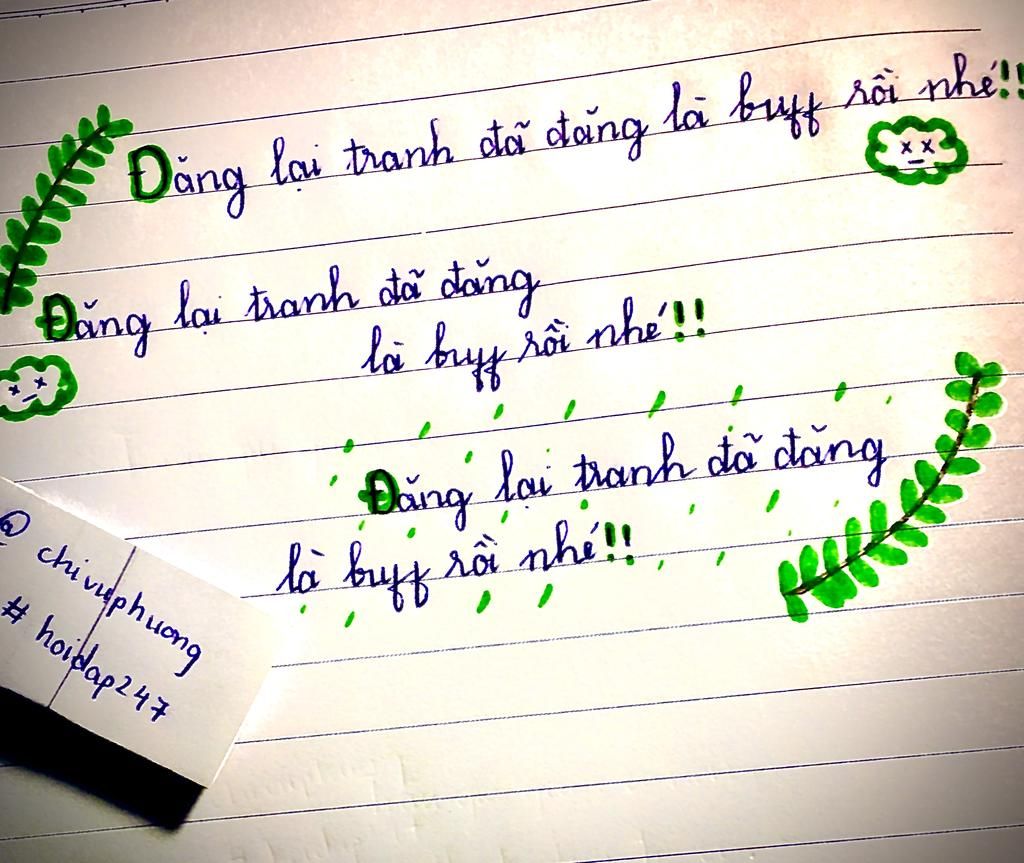 Đăng lại tranh đã đăng là buff rồi nhé!!
Đăng lại tranh đã đăng
là buff rồi nhé!!
Đăng lại tranh đã đăng
là buff rồi nhé!!
@ chivuphuong
# hoidap247